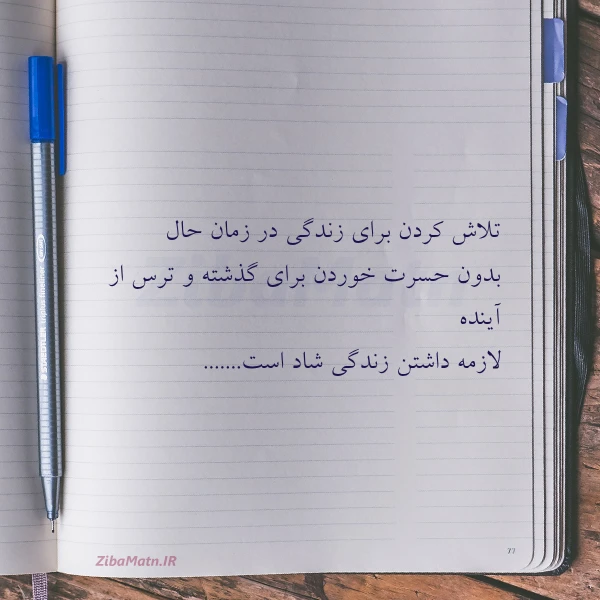 تلاش کردن برای زندگی در زمان حال
بدون حسرت خوردن برای گذشته و ترس از
آینده
لازمه داشتن زندگی شاد است.......
ZibaMatn.IR